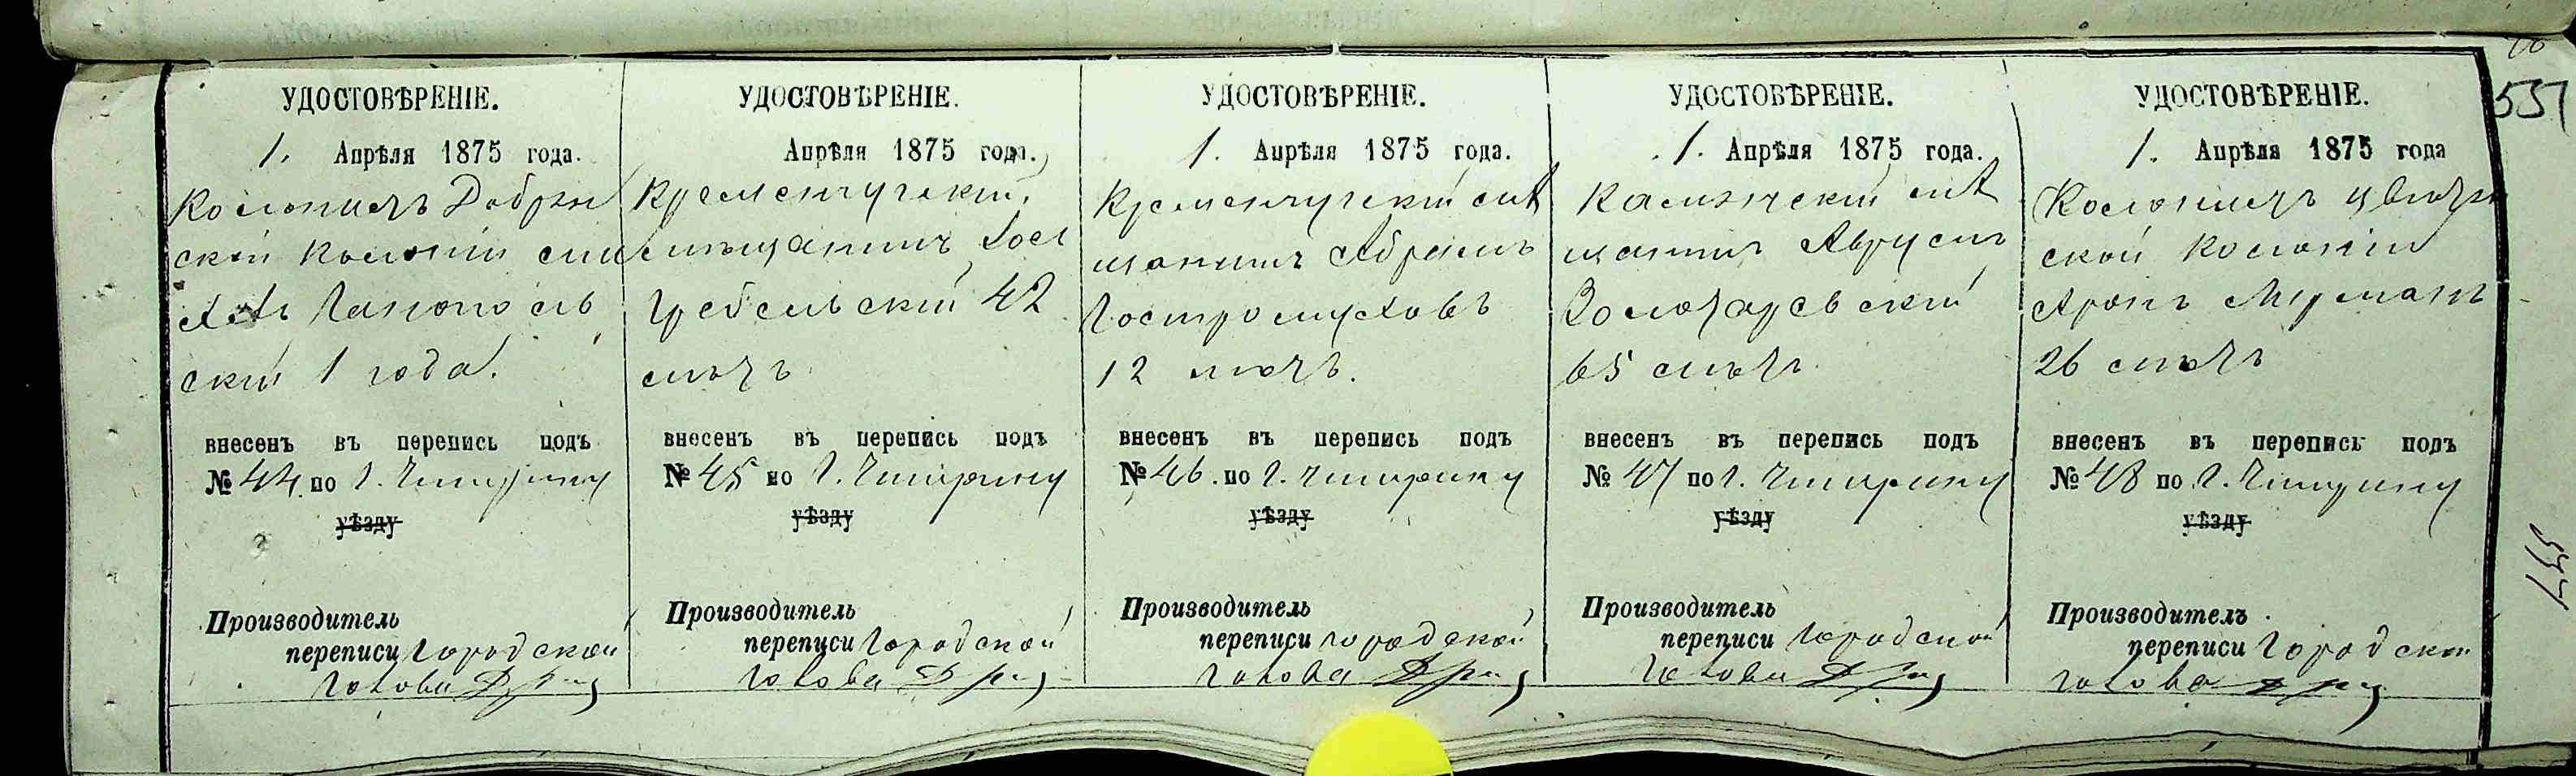 551
УДОСТОВѢРЕНІЕ.
1. Апрѣля 1875 года.
Колонистъ Добрян
ской колоніи
ский 1 года.
внесенъ въ перепись подъ
№ 44. по г. Чигирину
уѣзду
Производитель
переписи Городской
Голова
УДОСТОВѢРЕНІЕ.
Апрѣля 1875 года.
Кременчугский
мѣщанинъ Іосъ
Гребельский 42
лѣтъ
внесенъ въ перепись подъ
№ 45 по г. Чигирину
уѣзду
Производитель
переписи Городской
Голова
УДОСТОВѢРЕНІЕ.
1. Апрѣля 1875 года.
Кременчугский мѣ
щанинъ Абрамъ
12 лѣтъ.
внесенъ въ перепись подъ
№ 46. по г. Чигирину
уѣзду
Производитель
переписи Городской
Голова
УДОСТОВѢРЕНІЕ.
1. Апрѣля 1875 года.
мѣ
щанинъ Аврумъ
Золотаревский
65 лѣтъ
внесенъ въ перепись подъ
№ 47 по г. Чигирину
уѣзду
Производитель
переписи Городской
Голова
УДОСТОВѢРЕНІЕ.
1. Апрѣля 1875 года
Колонистъ
ской колоніи
Аронъ
26 лѣтъ
внесенъ въ перепись подъ
№ 48 по г. Чигирину
уѣзду
Производитель
переписи Городской
Голова